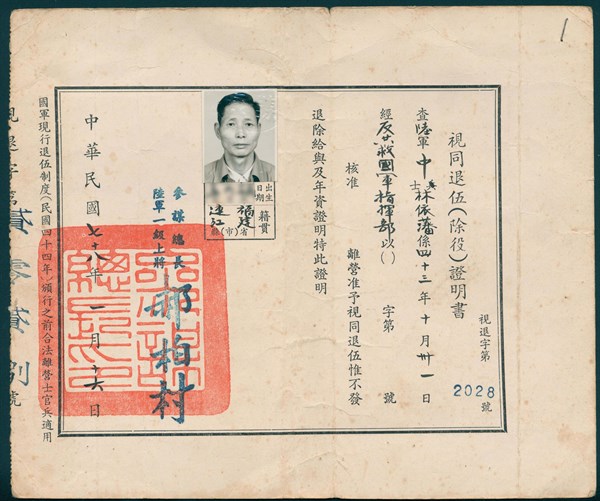 1
視同退伍(除役)證明書
視退字第2028號
查陸軍中士林依藩係四十三年十月卅一日
經反共救國軍指揮部以( )字第 號
核准 離營准予視同退伍惟不發
退除給與及年資證明特此證明
出生日期
籍貫
福建省
連江縣(市)
參謀總長
陸軍一級上將
郝柏村
中華民國七十八年一月十六日
國軍現行退伍制度(民國四十四年)頒行之前合法離營士官兵適用
視退字第貳零貳捌號